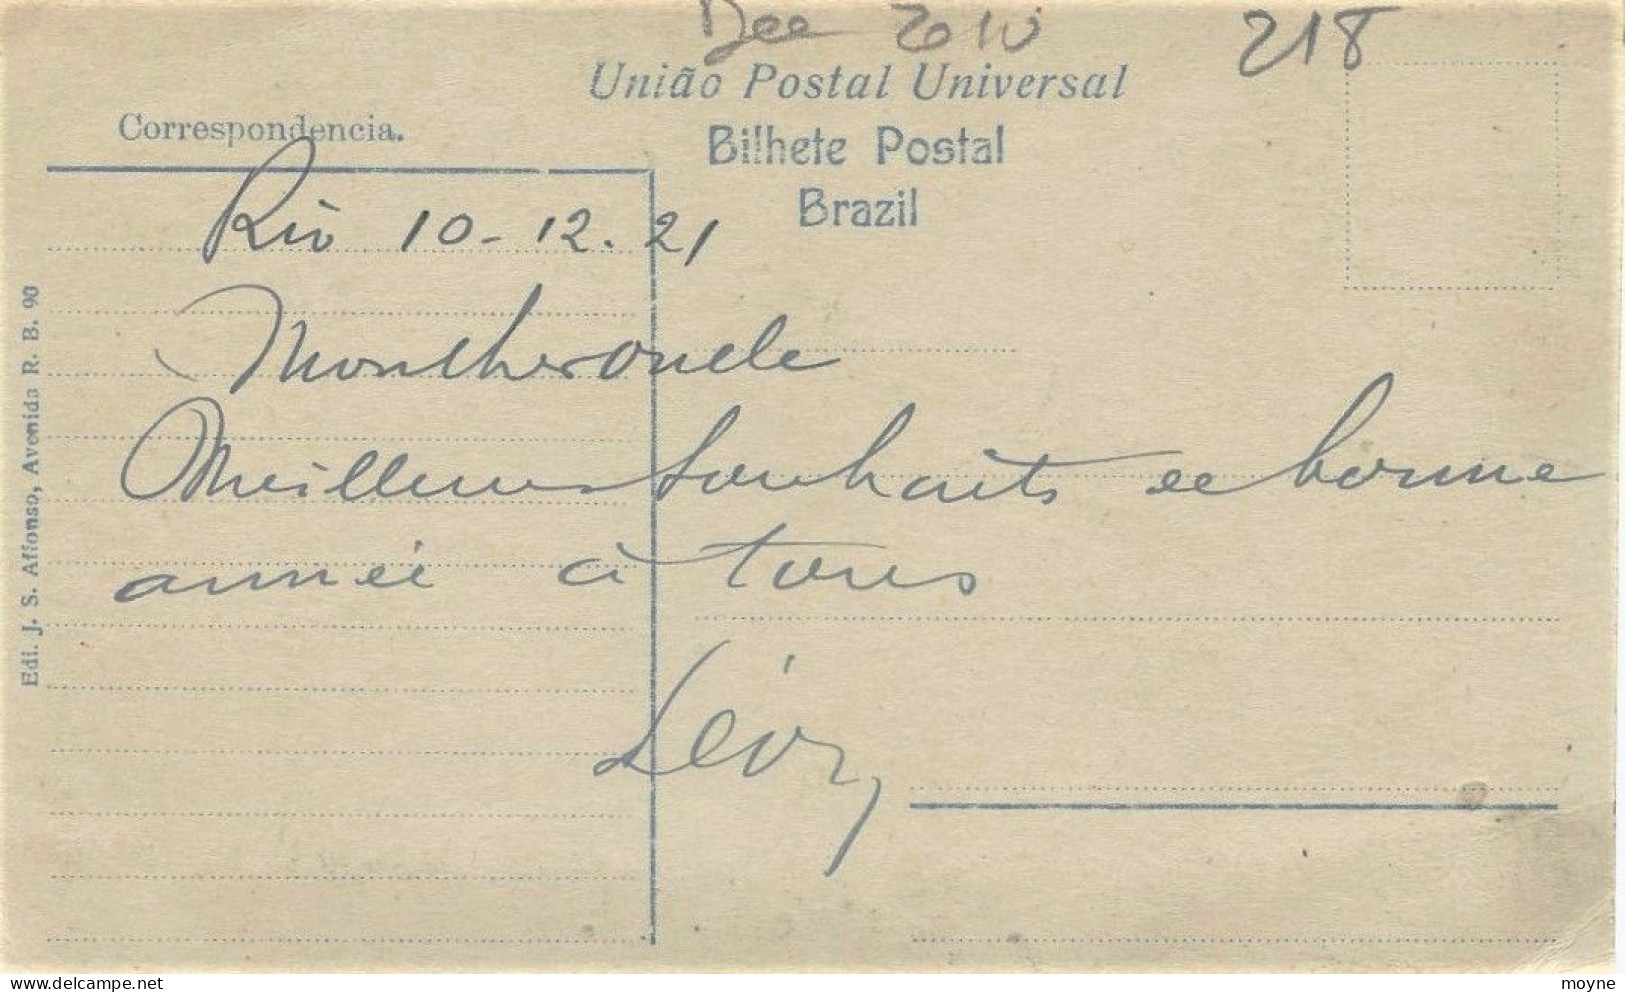 Dec 2010
218
União Postal Universal
Correspondencia.
Bilhete Postal
Brazil
Rio 10-12.21
Mon cher oncle
Meilleurs souhaits et bonne
année à tous
Lévy
Edi. J. S. Affonso, Avenida R. B. 90
delcampe.net
moyne